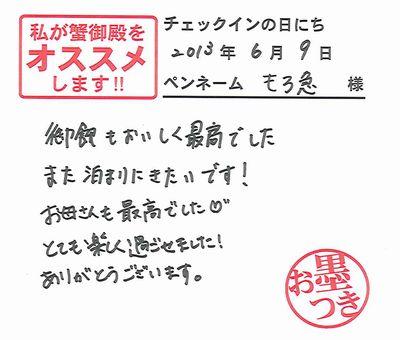 私が蟹御殿を
オススメ
します!!
チェックインの日にち
2013年6月9日
ペンネーム もろ急 様
御飯もおいしく最高でした
また泊まりにきたいです!
お母さんも最高でした
とても楽しく過ごせました!
ありがとうございます。
お墨つき